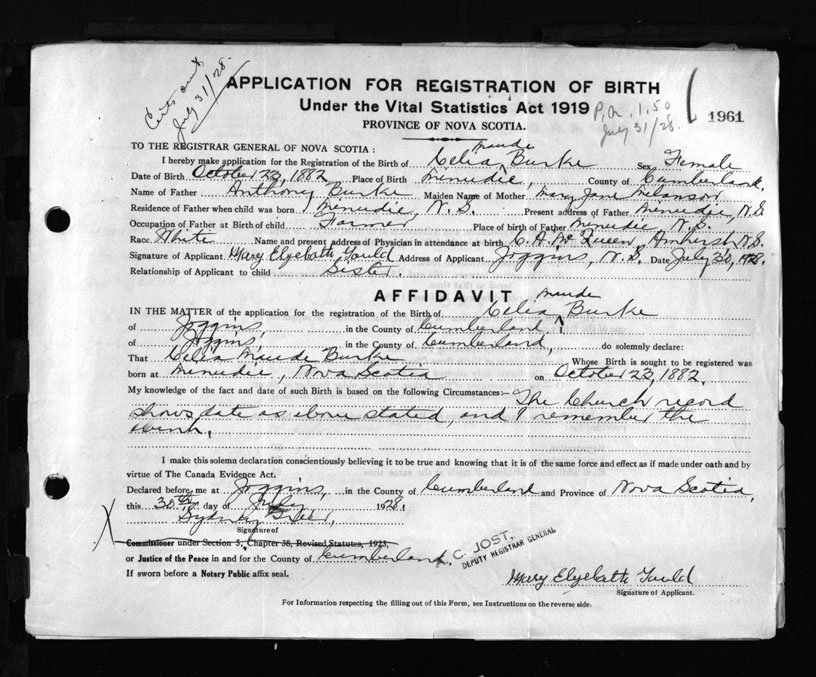 Certs sent,
July 31/28.
APPLICATION FOR REGISTRATION OF BIRTH
Under the Vital Statistics Act 1919
P.O. 1.50
July 31/28.
1961
PROVINCE OF NOVA SCOTIA.
TO THE REGISTRAR GENERAL OF NOVA SCOTIA:
I hereby make application for the Registration of the Birth of Celia Maude Burke Sex Female
Date of Birth October 23, 1882 Place of Birth Minudie, County of Cumberland.
Name of Father Anthony Burke Maiden Name of Mother Mary Jane Melanson
Residence of Father when child was born Minudie, N.S. Present address of Father Minudie, N.S
Occupation of Father at Birth of child Farmer Place of birth of Father Minudie N.S.
Race. White Name and present address of Physician in attendance at birth C. A. McQueen, Amherst N.S.
Signature of Applicant Mary Elyebath Gould Address of Applicant Joggins, N.S. Date July 30, 1928.
Relationship of Applicant to child Sister.
AFFIDAVIT
IN THE MATTER of the application for the registration of the Birth of Celia Maude Burke
of Joggins, in the County of Cumberland,
of Joggins, in the County of Cumberland, do solemnly declare:
That Celia Maude Burke Whose Birth is sought to be registered was
born at Minudie, Nova Scotia on October 23, 1882.
My knowledge of the fact and date of such Birth is based on the following Circumstances:- The Church record
shows date as above stated, and I remember the
event.
I make this solemn declaration conscientiously believing it to be true and knowing that it is of the same force and effect as if made under oath and by
virtue of The Canada Evidence Act.
Declared before me at Joggins, in the County of Cumberland and Province of Nova Scotia,
this 30th day of July 1928.
Sydney
Signature of
Commissioner under Section 5, Chapter 38, Revised Statutes, 1923,
or Justice of the Peace in and for the County of Cumberland.
C. JOST,
DEPUTY REGISTRAR GENERAL
If sworn before a Notary Public affix seal.
Mary Elyebath Gould
Signature of Applicant.
For Information respecting the filling out of this Form, see Instructions on the reverse side.